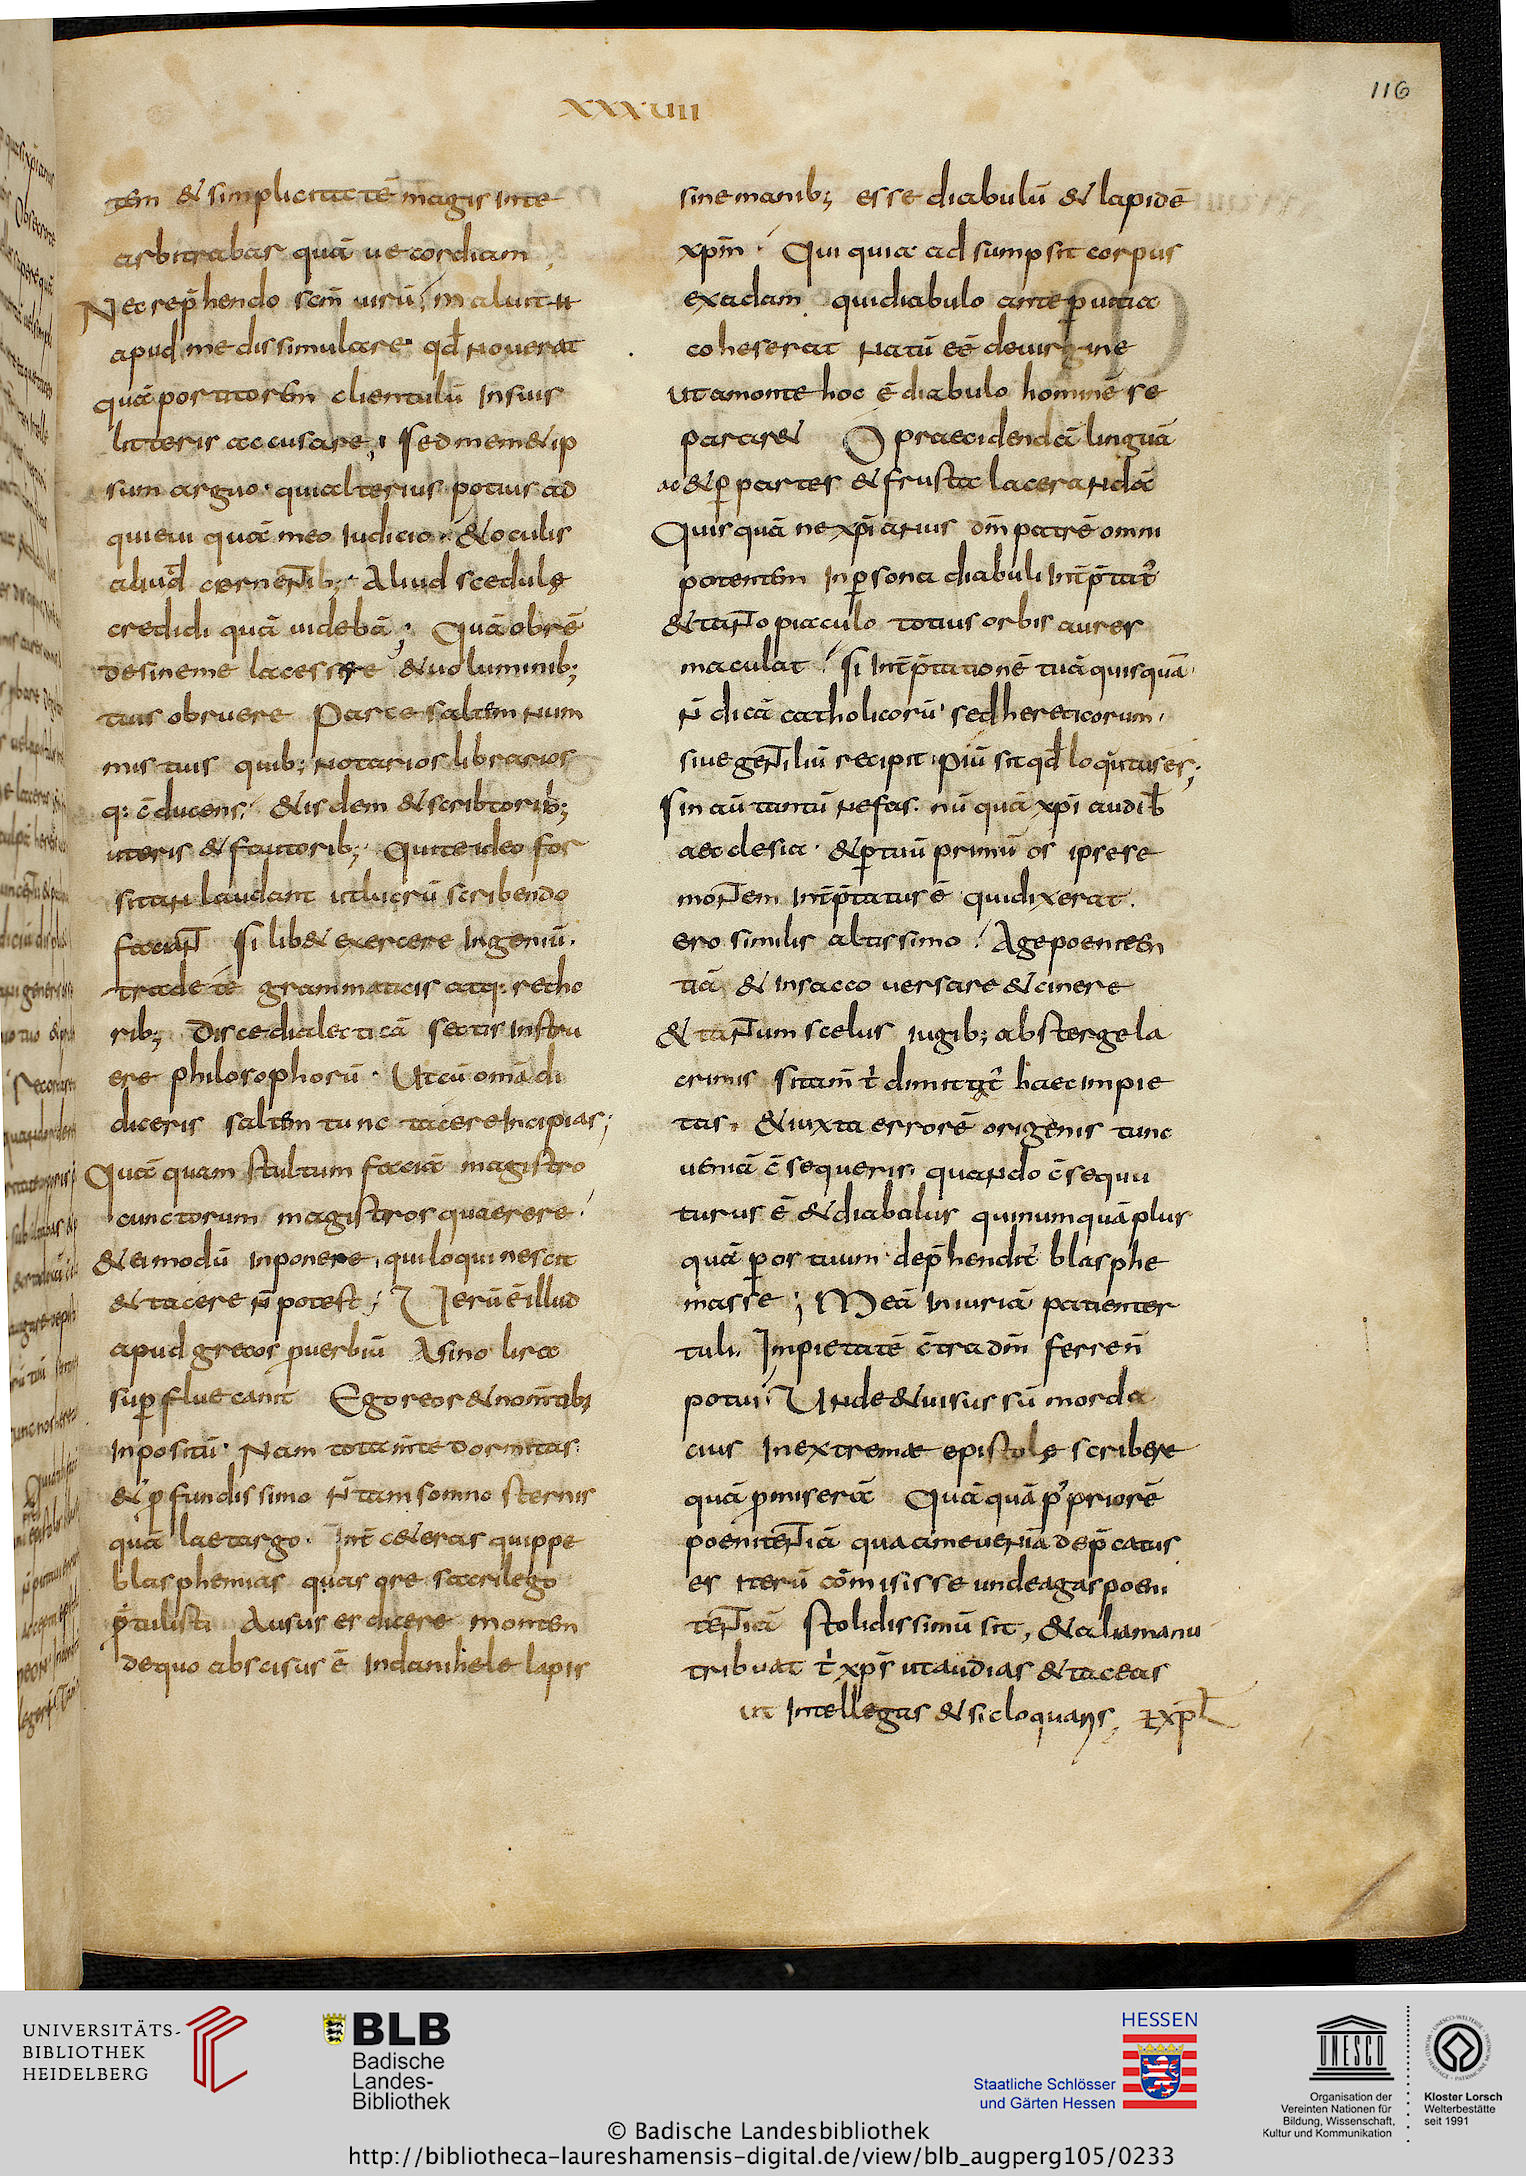 XXXVIII
116
tem & simplicitatē magis inte
arbitrabar quā uecordiam
Nec rep̄hendo scm̄ uirū maluit ut
apud me dissimulare qđ nouerat
quā portitorem clientulū in suis
litteris accusare; sed mem& ip
sum arguo quialterius potius ad
quieui quā meo iudicio & oculis
aliud cernentib; Aliud scedulę
credidi quā uidebā; Quā obrē
desineme lacessere & uoluminib;
tuis obruere Parce saltem num
mis tuis quib; notarios librarios
q: c̄ducens; & isdem & scribtorib;
uteris & fautorib; Qui te ideo for
sitan laudant ut lucrū scribendo
faciant Si lib& exercere ingeniū.
trade tē grammaticis atq: retho
rib; Disce dialecticā sectis instru
ere philosophorū. Ut cū omā di
diceris saltem tunc tacere incipias;
Quā quam stultum faciā magistro
cunctorum magistros quaerere
& ei modū inponere, qui loqui nescit
& tacere n̄ potest; Uerū ē illud
apud grecos puerbiū Asino lira
sup̄flue canit Ego reor & nomtibi
inpositū. Nam tota mte dormitas
& p fundissimo n̄ tam somno sternis
quā laetargo. Int̄ c&eras quippe
blasphemias quas ore sacrilego
p̄tulisti Ausus es dicere montem
de quo abscisus ē in danihele lapis
sine manib; esse diabulū & lapidē
xpm̄ Qui quia ad sumpsit corpus
ex adam qui diabulo ante p uitia
coheserat natū eē de uirgine
ut a monte hoc ē diabulo hominē se
parar& O praecidendā linguā
ac & p̄ partes & frusta lacerandā
Quisquā ne xp̄ianus dm̄ patrē omni
potentem in p̄sona diabuli int̄p̄tat̄
& tanto piaculo totius orbis aures
maculat Si int̄p̄tationē tuā quisquā
n̄ dicā catholicorū sed hereticorum.
siue gentiliū recipit piū sit qđ loqutus es;
Sin aū tantū nefas. nū quā xp̄i audiƀ
aecclesia. & p̄ tuū primū os ipse se
montem int̄p̄tatus ē qui dixerat.
ero similis altissimo Age poeniten
tiā & in sacco uersare & cinere
& tantum scelus iugib; absterge la
crimis si tam̄ t̄ dimittat̄ haec impie
tas. & iuxta errorē origenis tunc
ueniā c̄sequeris. quando c̄sequu
turus ē & diabolus qui numquā plus
quā p̄ os tuum dep̄hendit̄ blasphe
masse; Meā iniuriā patienter
tuli. Impietatē c̄tra dm̄ ferre n̄
potui; Unde & uisus sū morda
cius in extrema epistolę scribere
quā p̄miserā Quā quā p̄ priorē
poenitentiā qua a me ueniā dep̄catus
es iterū cōmisisse unde agas poeni
tentiā stolidissimū sit, & alia manu
tribuat t̄ xp̄s ut audias & taceas
ut intellegas & sic loquaris, Expł
UNIVERSITÄTS-
BIBLIOTHEK
HEIDELBERG
BLB
Badische
Landes-
Bibliothek
HESSEN
Staatliche Schlösser
und Gärten Hessen
UNESCO
Organisation der
Vereinten Nationen für
Bildung, Wissenschaft,
Kultur und Kommunikation
Kloster Lorsch
Welterbestätte
seit 1991
© Badische Landesbibliothek
http://bibliotheca-laureshamensis-digital.de/view/blb_augperg105/0233